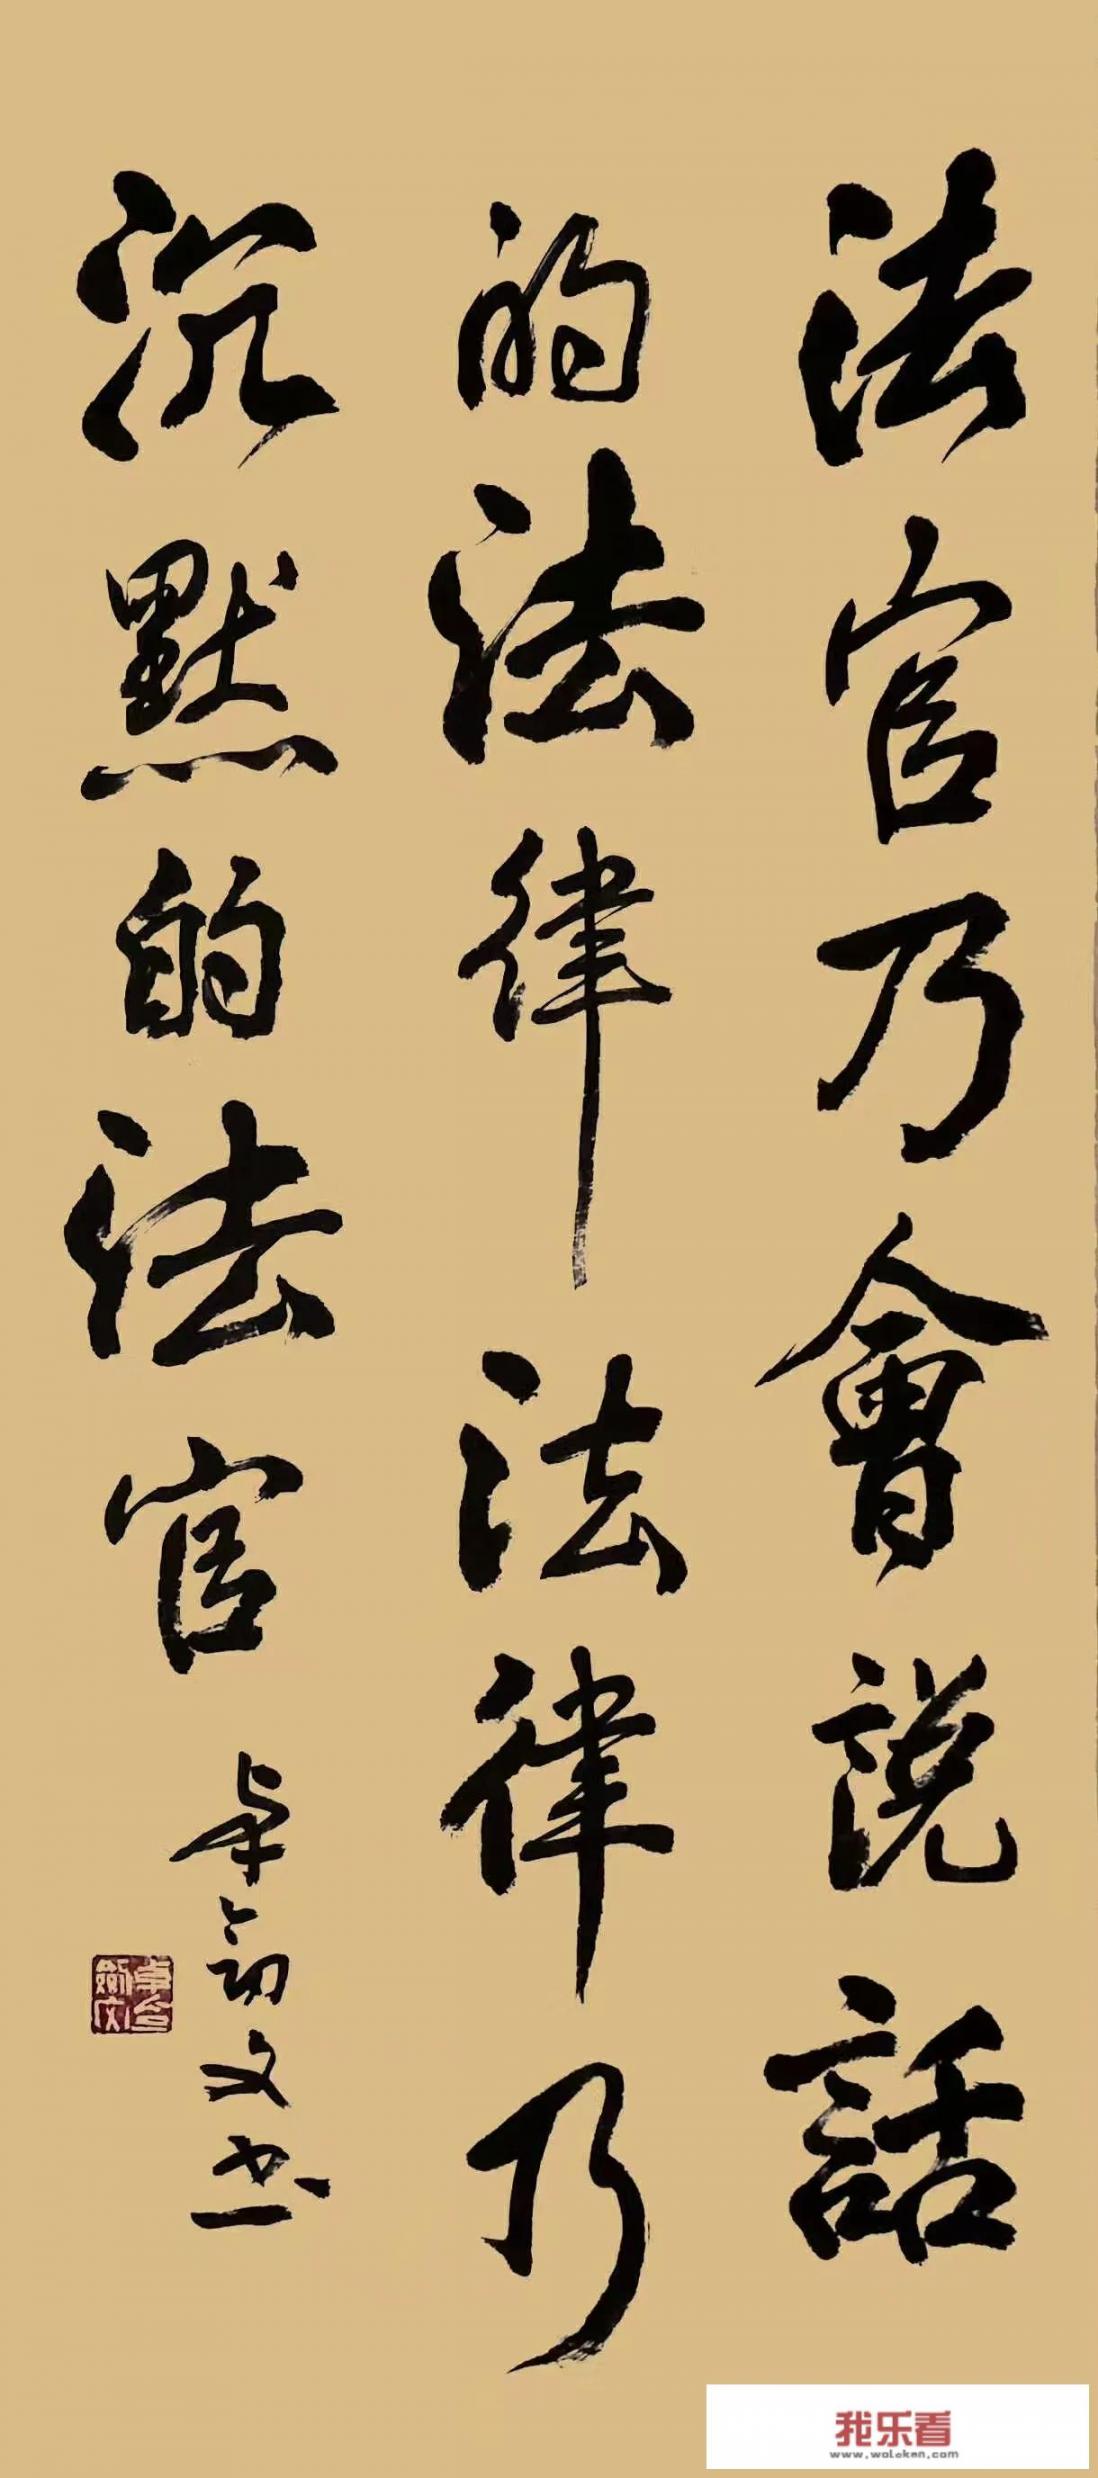 法官乃會説話
的法律法律乃
沉默的法官
卓今劒文书
我乐看
www.woleken.com